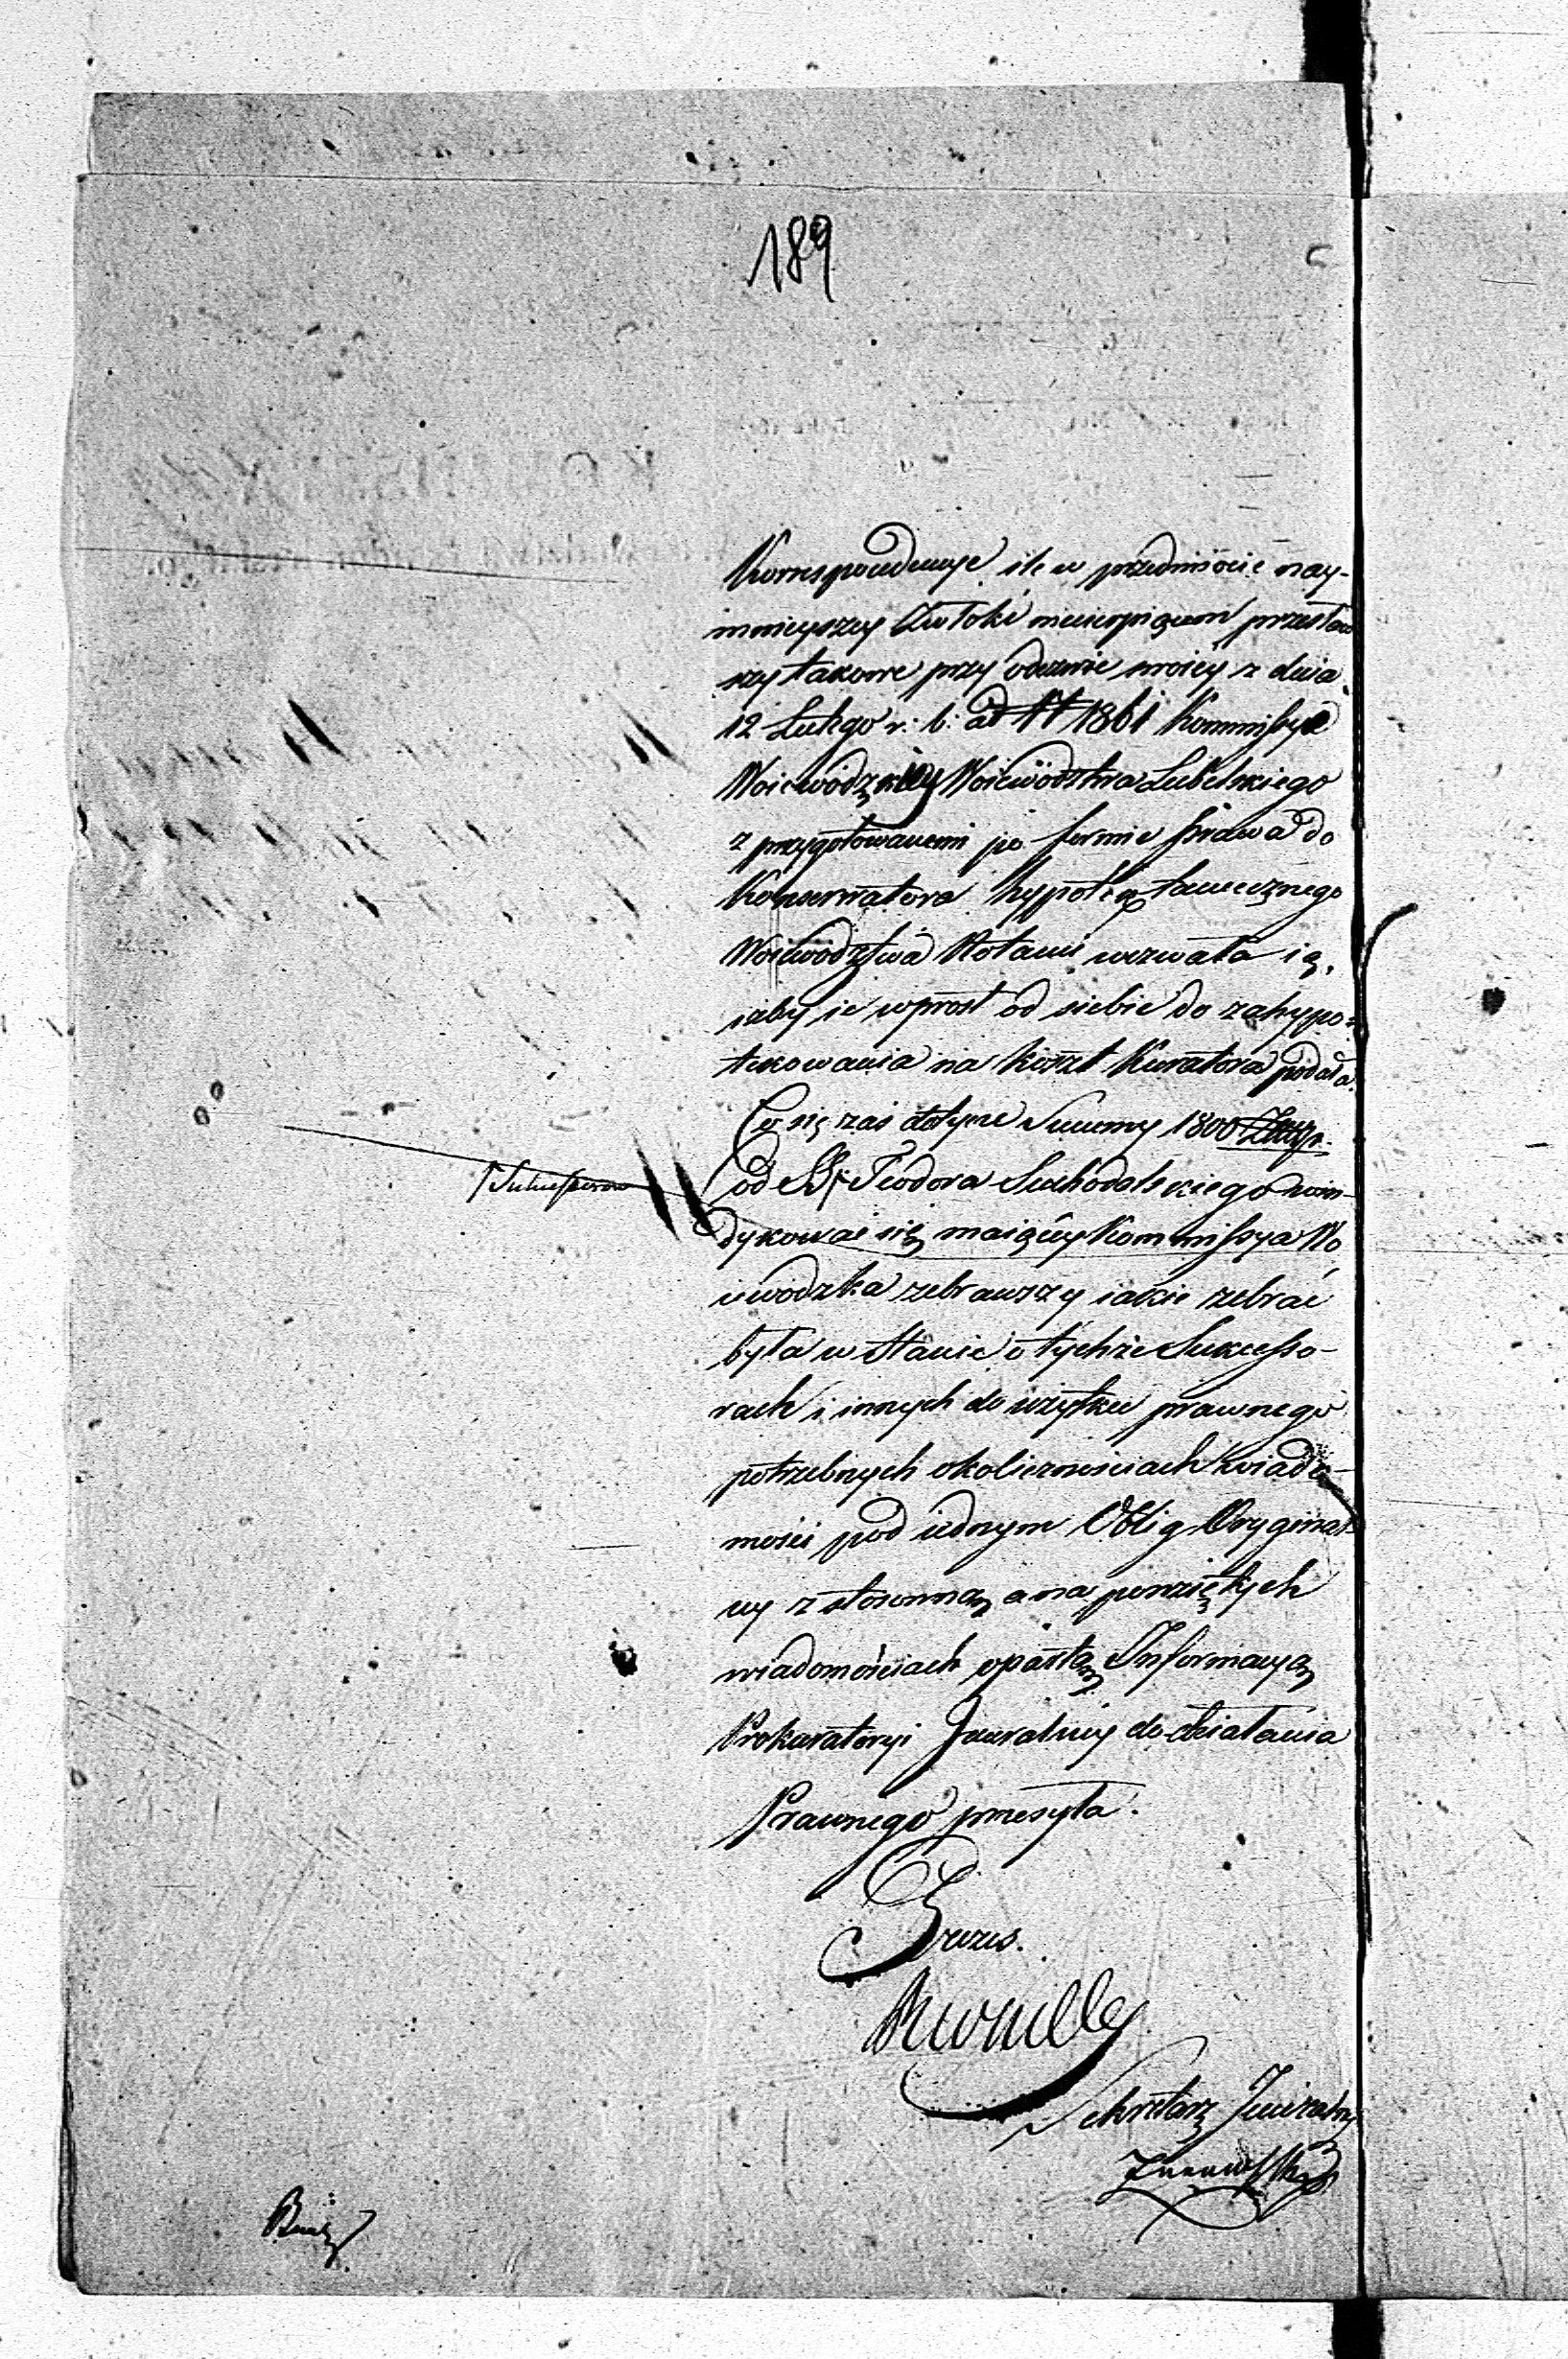 189
Korrespondencye ile w przedmiocie nay-
mnieyszey Zwłoki niecierpiącem przesław
szy takowe przy odezwie swoiéy z dnia
12 Lutego r: b: ad N 1861 Kommissya
Woiewódzkiey Woiewództwa Lubelskiego
z przygotowanemi po formie prawa do
Konserwatora hypotek tamecznego
Woiewodztwa Notami wezwała ią,
iżby ie wprost od siebie do zahypo=
tekowania na koszt Kuratora podała.
Co się zaś dotycze Summy 1800
od Teodora Suchodolskiego win-
/Sukcessorow
dykować się maiącey Kommissya Wo
iewodzka zebrawszy iakie zebrać
była w stanie o tychże Sukcesso-
rach i innych do użytku prawnego
potrzebnych okolicznościach wiado-
mości pod iednym Oblig Oryginal
ny z stosowną a na powziętych
wiadomościach opartą Informacyą
Prokuratoryi Jeneralney do działania
Prawnego przesyła.
Prezes.
Sekretarz Jeneralny